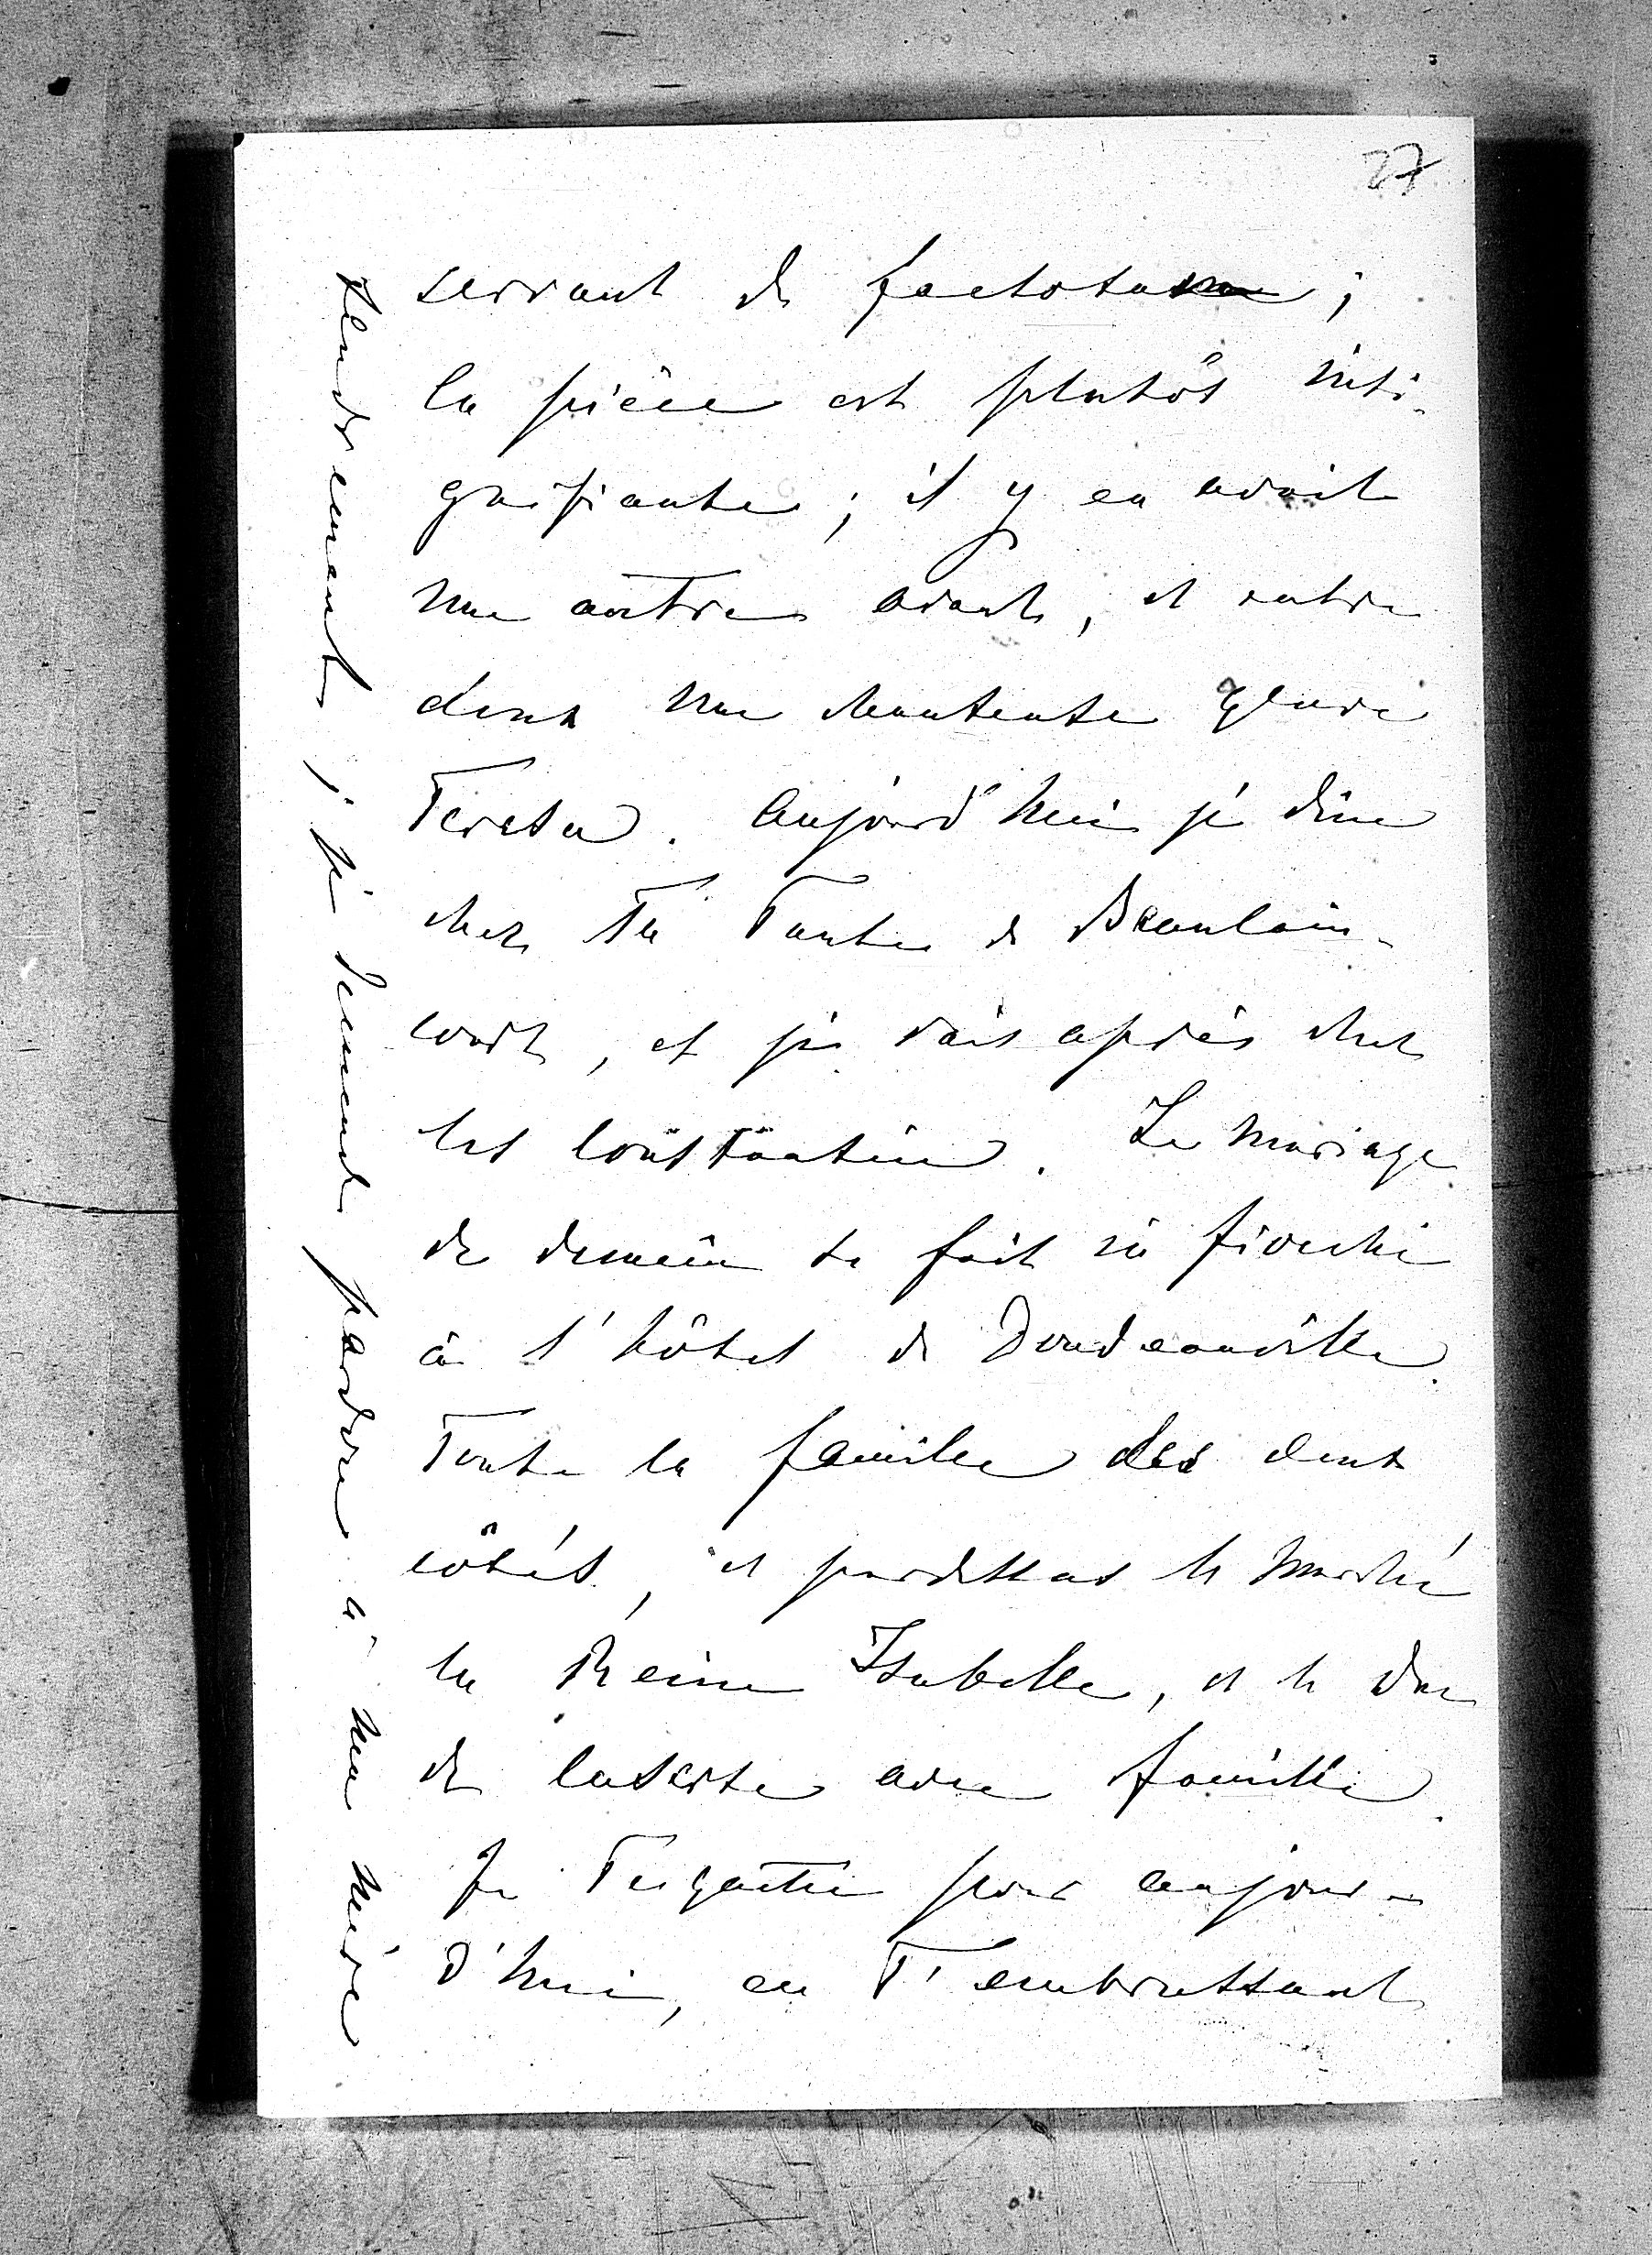 27
servant de factotum ;
la pièce est plutôt insi-
gnifiante ; il y en avait
une autre avant, et entre
deux une chanteuse genre
Teresa. Aujourd'hui je dîne
chez Ta Tante de Beaulain-
court, et je vais après chez
les Constantin. Le mariage
de demain se fait in fiocchi
à l'hôtel de Doudeauville.
Toute la famille des deux
côtés, et pardessus le marché
la Reine Isabelle, et le Duc
de avec famille.
Je Te quitte pour aujour-
d'hui, en T'embrassant
tendrement ; je demande pardon à ma mère